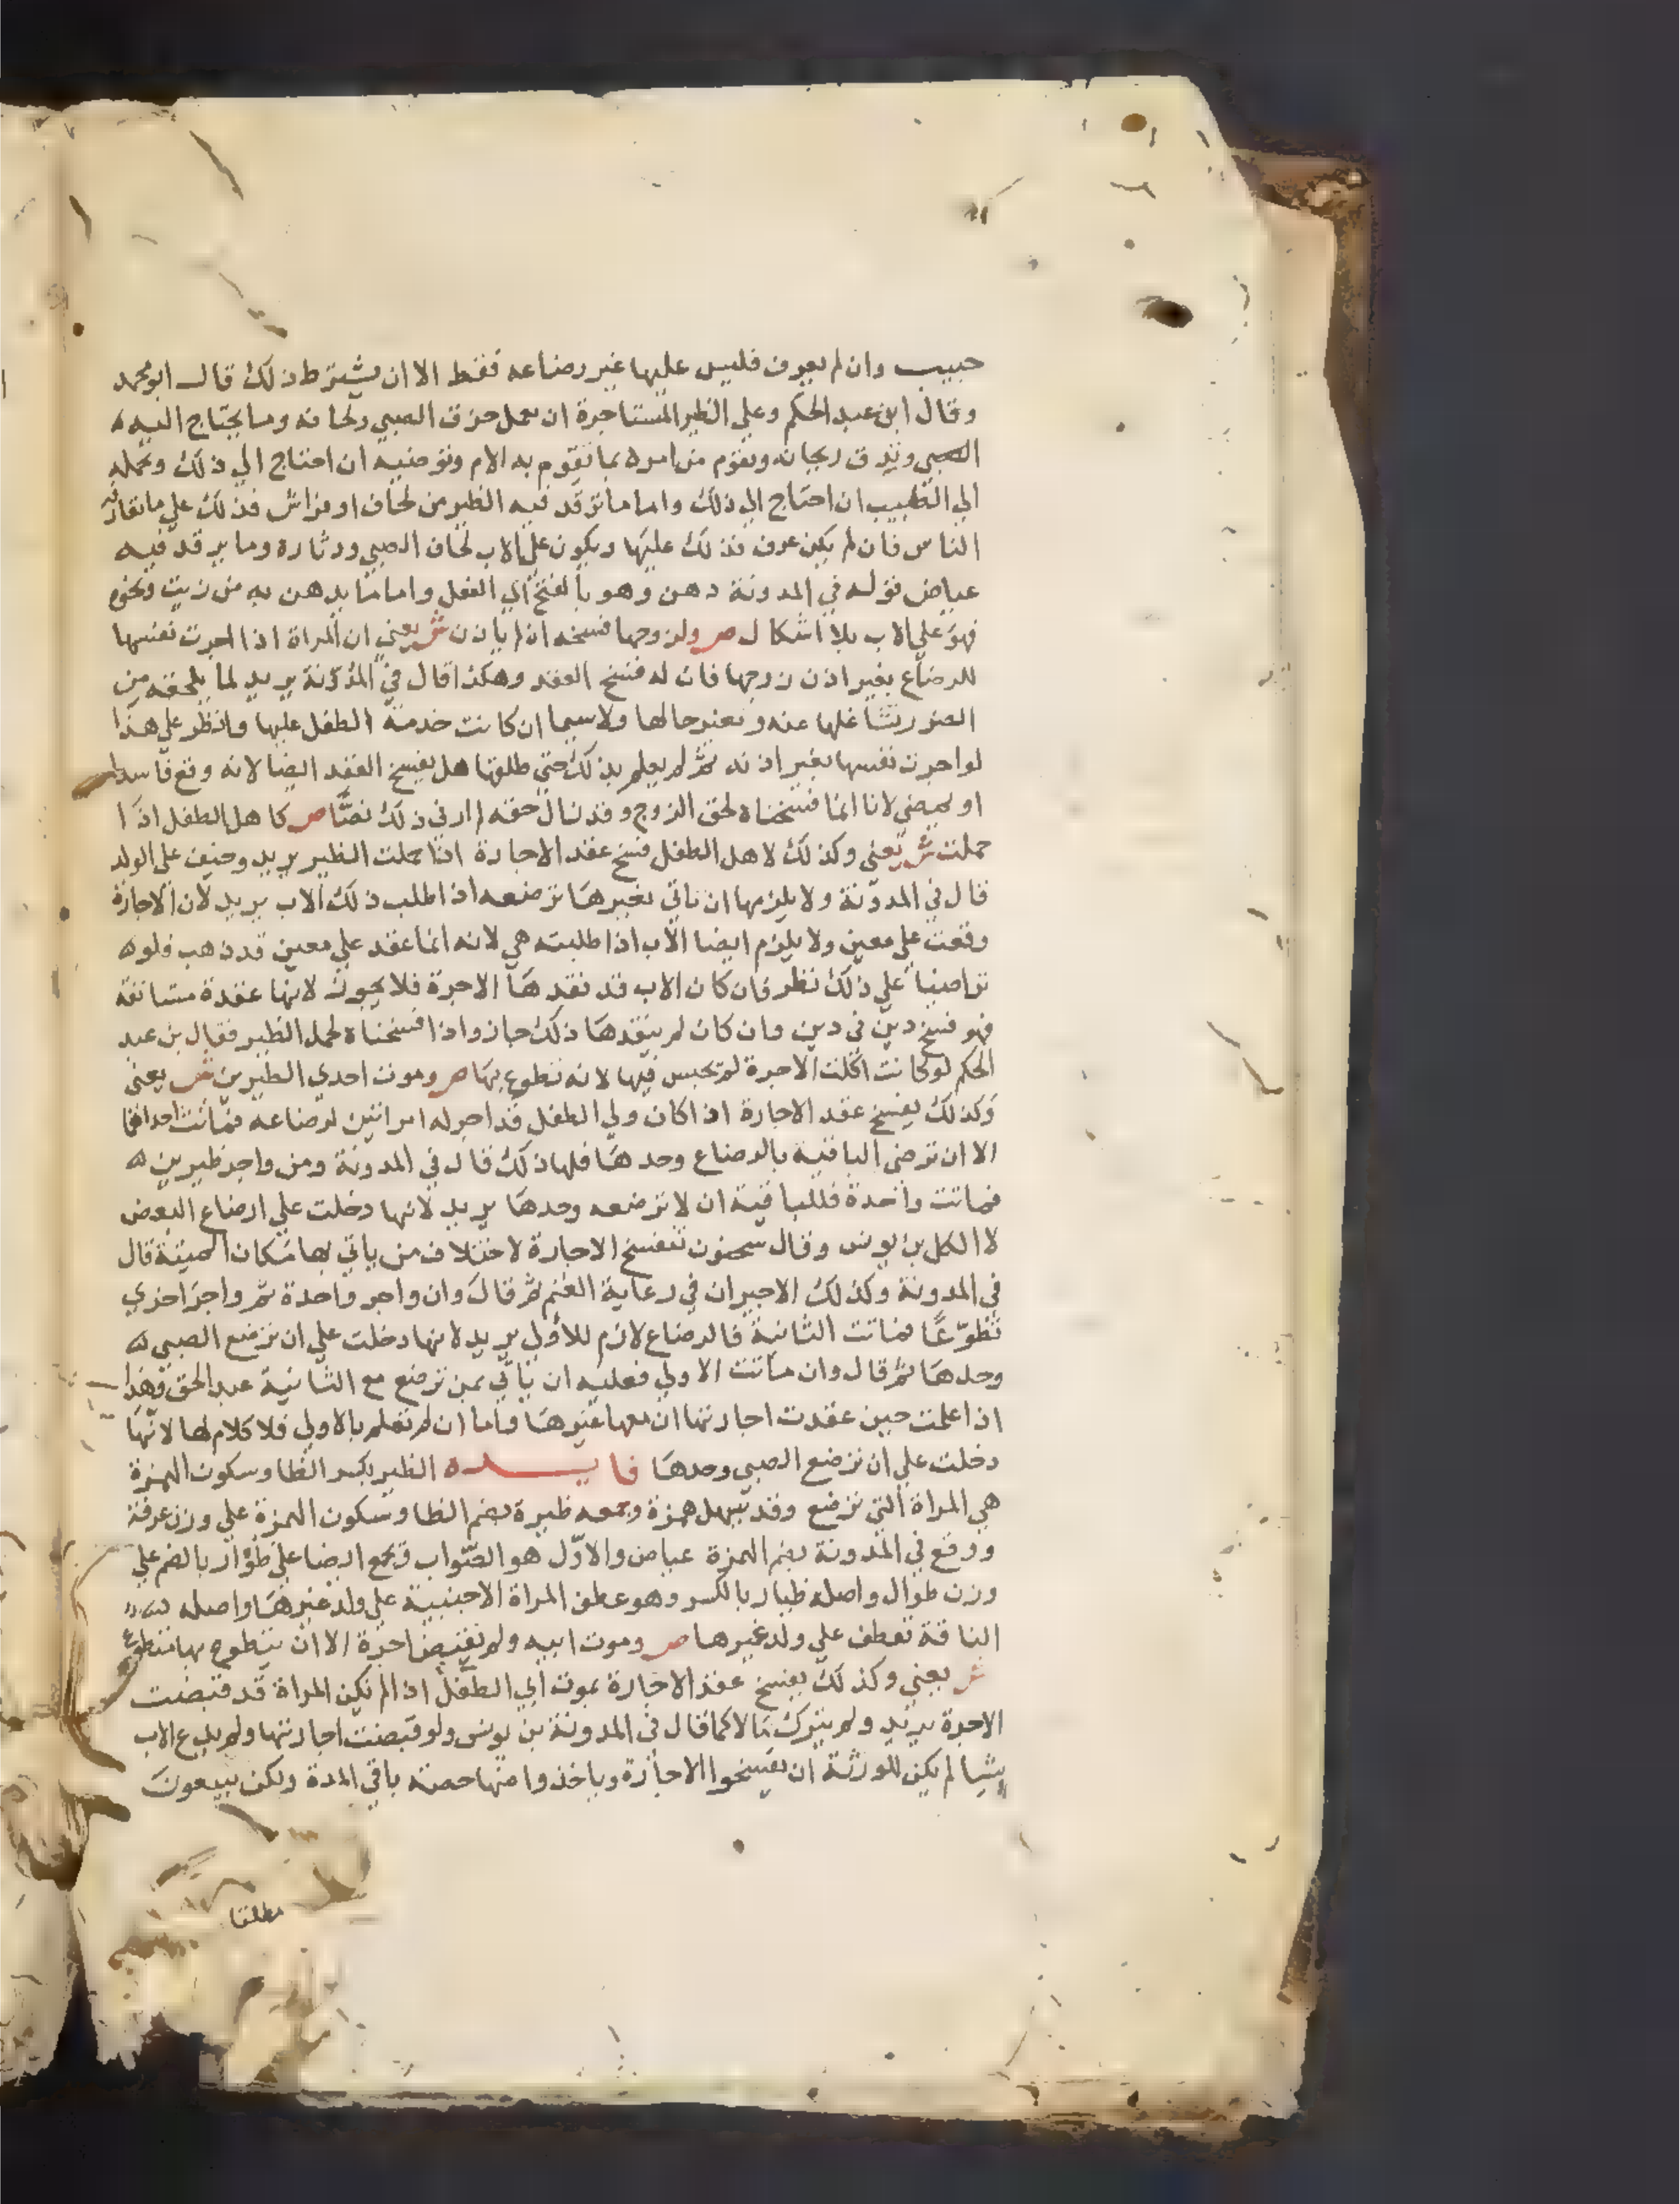 حبيب وان لم يعرف فليس عليها غير رضاعه فقط الا ان يشترط ذلك قال ابو محمد
وقال ابن عبد الحكم وعلي الظير المستاجرة ان تعمل خرق الصبي ولحافه وما يحتاج اليه
الصبي وتدق ريحانه وتقوم من امره بما تقوم به الام وتوضيه ان احتاج الي ذلك وتحمله
الي الطبيب ان احتاج الي ذلك واما ما ترقد فيه الظير من لحاف او فراش فذلك علي ما تعارفه
الناس فان لم يكن عرف فذلك عليها ويكون علي الاب لحاف الصبي ودثاره وما يرقد فيه
عياض قوله في المدونة دهن وهو بالفتح اي الفعل واما ما يدهن به من زيت ونحوه
فهو علي الاب بلا اشكال ص ولزوجها فسخه ان لم ياذن ش يعني ان المراة اذا اجرت نفسها
للرضاع بغير اذن زوجها فان له فسخ العقد وهكذا قال في المدونة يريد لما يلحقه من
الضرر بتشاغلها عنه وتغير حالها ولا سيما ان كانت خدمة الطفل عليها وانظر علي هذا
لو اجرت نفسها بغير اذنه ثم لم يعلم بذلك حتي طلقها هل يفسخ العقد ايضا لانه وقع فاسدا
او يمضي لانا انما فسخناه لحق الزوج وقد نال حقه لم ار في ذلك نصا ص كاهل الطفل اذا
حملت ش يعني وكذلك لاهل الطفل فسخ عقد الاجارة اذا حملت الظير يريد وخيف علي الولد
قال في المدونة ولا يلزمها ان تاتي بغيرها ترضعه اذا طلب ذلك الاب يريد لان الاجارة
وقعت علي معين ولا يلزم ايضا الاب اذا طلبته هي لانه انما عقد علي معين قد ذهب فلو
تراضيا علي ذلك نظر فان كان الاب قد نقدها الاجرة فلا يجوز لانها عقدة مستانفة
فهو فسخ دين في دين وان كان لم ينقدها ذلك جاز واذا فسخناه لحمل الظير فقال بن عبد
الحكم لو كانت اكلت الاجرة لم تحبس فيها لانه تطوع بها ص وموت احدي الظيرين ش يعني
وكذلك يفسخ عقد الاجارة اذا كان ولي الطفل قد اجر له امراتين لرضاعه فماتت احداهما
الا ان ترضي الباقية بالرضاع وحدها فلها ذلك قال في المدونة ومن واجر ظيرين
فماتت واحدة فللباقية ان لا ترضعه وحدها يريد لانها دخلت علي ارضاع البعض
لا الكل بن يونس وقال سحنون تنفسخ الاجارة لاختلاف من ياتي بها مكان الميتة قال
في المدونة وكذلك الاجيران في رعاية الغنم ثم قال وان واجر واحدة ثم واجر اخري
تطوعا فماتت الثانية فالرضاع لازم للاولي يريد لانها دخلت علي ان ترضع الصبي
وحدها ثم قال وان ماتت الاولي فعليه ان ياتي بمن ترضع مع الثانية عبد الحق وهذا
اذا علمت حين عقدت اجارتها ان معها غيرها واما ان لم تعلم بالاولي فلا كلام لها لانها
دخلت علي ان ترضع الصبي وحدها فايده الظير بكسر الظا وسكون الهمزة
هي المراة التي ترضع وقد تسهل همزة وجمعه ظيرة بضم الظا وسكون الهمزة علي وزن غرفة
ووقع في المدونة بضم الهمزة عياض والاول هو الصواب وجمع ايضا علي ظوار بالضم علي
وزن طوال واصله ظيار بالكسر وهو عطف المراة الاجنبية علي ولد غيرها واصله
الناقة تعطف علي ولد غيرها ص وموت ابيه ولم تقبض اجرة الا ان يتطوع بها متطوع
ش يعني وكذلك يفسخ عقد الاجارة بموت ابي الطفل اذا لم تكن المراة قد قبضت
الاجرة يريد ولم يترك مالا كما قال في المدونة بن يونس ولو قبضت اجارتها ولم يدع الاب
شيا لم يكن للورثة ان يفسخوا الاجارة وياخذوا منها حصة باقي المدة ولكن يبيعون
مطلقا